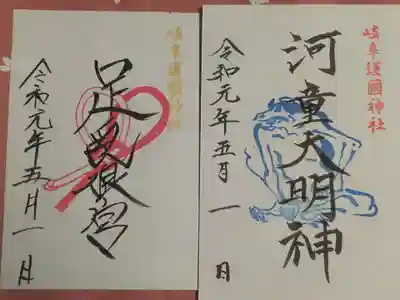 岐阜護國神社
河童大明神
令和元年五月一日
岐阜護國神社
令和元年五月一日